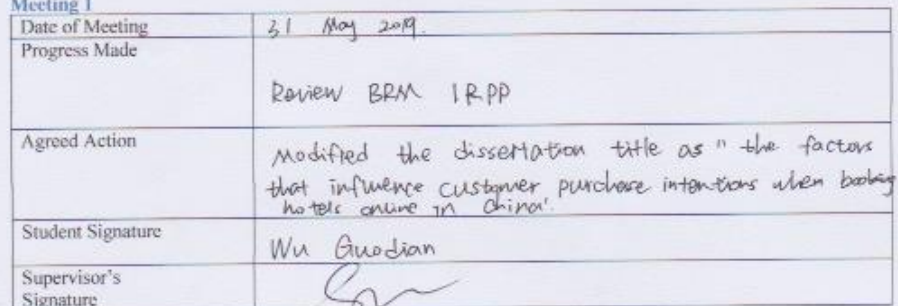 Meeting 1
Date of Meeting 31 May 2019.
Progress Made
Review BRM IRPP
Agreed Action
Modified the dissertation title as " the factors
that influence customer purchase intentions when booking
hotels online in China'.
Student Signature
Wu Guodian
Supervisor's
Signature